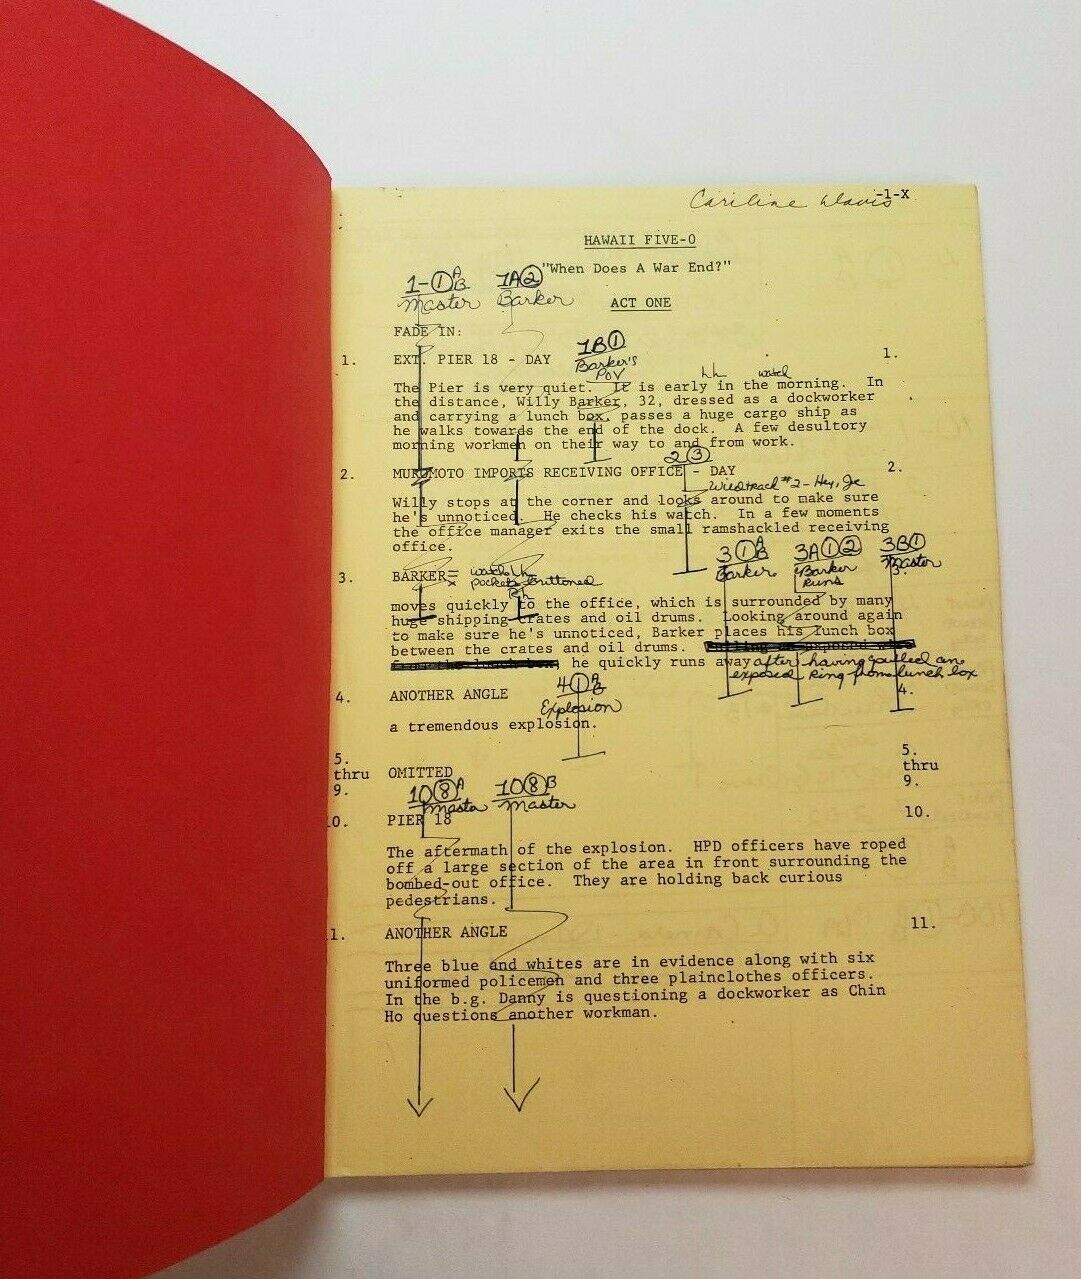 -1-X
Cariline Davis
HAWAII FIVE-O
"When Does A War End?"
1-① A B 1A②
Master Barker
ACT ONE
FADE IN:
1B①
Barker's
POV
1. EXT. PIER 18 - DAY 1.
Lh watch
The Pier is very quiet. It is early in the morning. In
the distance, Willy Barker, 32, dressed as a dockworker
and carrying a lunch box, passes a huge cargo ship as
he walks towards the end of the dock. A few desultory
morning workmen on their way to and from work.
2③
2. MUKOMOTO IMPORTS RECEIVING OFFICE - DAY 2.
Wildtrack #2 - Hey, Joe
Willy stops at the corner and looks around to make sure
he's unnoticed. He checks his watch. In a few moments
the office manager exits the small ramshackled receiving
office.
3① A B 3A①② 3B①
Barker Barker Runs Master
3. BARKER 3.
watch Lh
pockets buttoned
Rh
moves quickly to the office, which is surrounded by many
huge shipping crates and oil drums. Looking around again
to make sure he's unnoticed, Barker places his lunch box
between the crates and oil drums.
he quickly runs away after having pulled an
exposed ring from lunch box
4① A B
Explosion
4. ANOTHER ANGLE 4.
a tremendous explosion.
5. 5.
thru OMITTED thru
9. 9.
10⑧ A 10⑧ B
Master Master
10. PIER 18 10.
The aftermath of the explosion. HPD officers have roped
off a large section of the area in front surrounding the
bombed-out office. They are holding back curious
pedestrians.
11. ANOTHER ANGLE 11.
Three blue and whites are in evidence along with six
uniformed policemen and three plainclothes officers.
In the b.g. Danny is questioning a dockworker as Chin
Ho questions another workman.